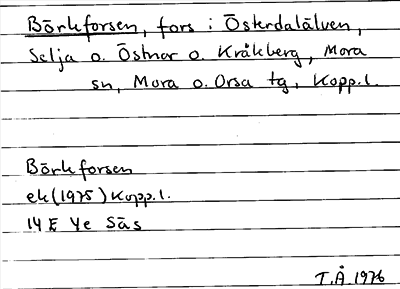 Börkforsen, fors i Österdalälven,
Selja o. Östnor o. Kråkberg, Mora
sn, Mora o. Orsa tg, Kopp.l.
Börkforsen
ek (1975) Kopp.l.
14 E Ye Sås
T.Å. 1976